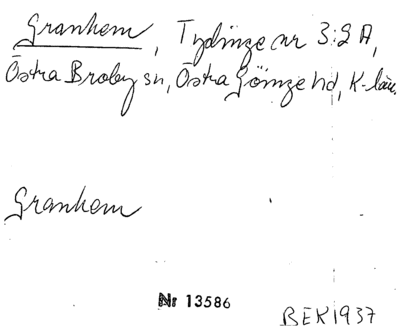 Granhem, Tydinge nr 3:9 A,
Östra Broby sn, Östra Göinge hd, K-län.
Granhem
Nr 13586
BEK 1937